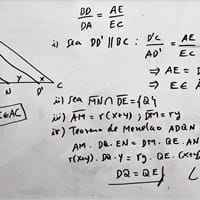 BD/DA = AE/EC
i) Sea DD' ∥ BC : D'C/AD' = AE/EC
⇒ AE = D
⇒ EC
ii) Sea MN ∩ DE = {Q}
iii) AM = r(x+y) ; DM = ry
iv) Teorema de Menelao ADQN
AM . DQ . EN = DM . QE . AN
r(x+y) . DQ . y = ry . QE . (x+y)
DQ = QE
N y D' x C
E ∈ AC